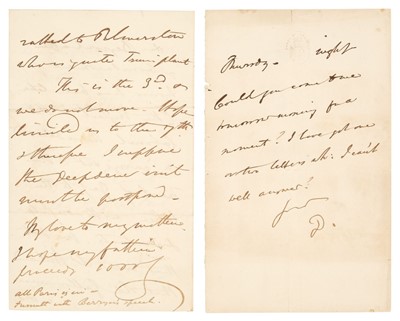 rallied to Palmerston
who is quite Triumphant
This is the 3d. &
we do not move. Hope
us to the 17th
& therefore I suppose
the Deepdene visit
must be postponed.
My love to my mother.
I hope my father
proceeds
all Paris is in a
with speech.
Thursday - night
Could you come to me
tomorrow morning for a
moment? I have got one
letters wh: I can't
well answer?
D.